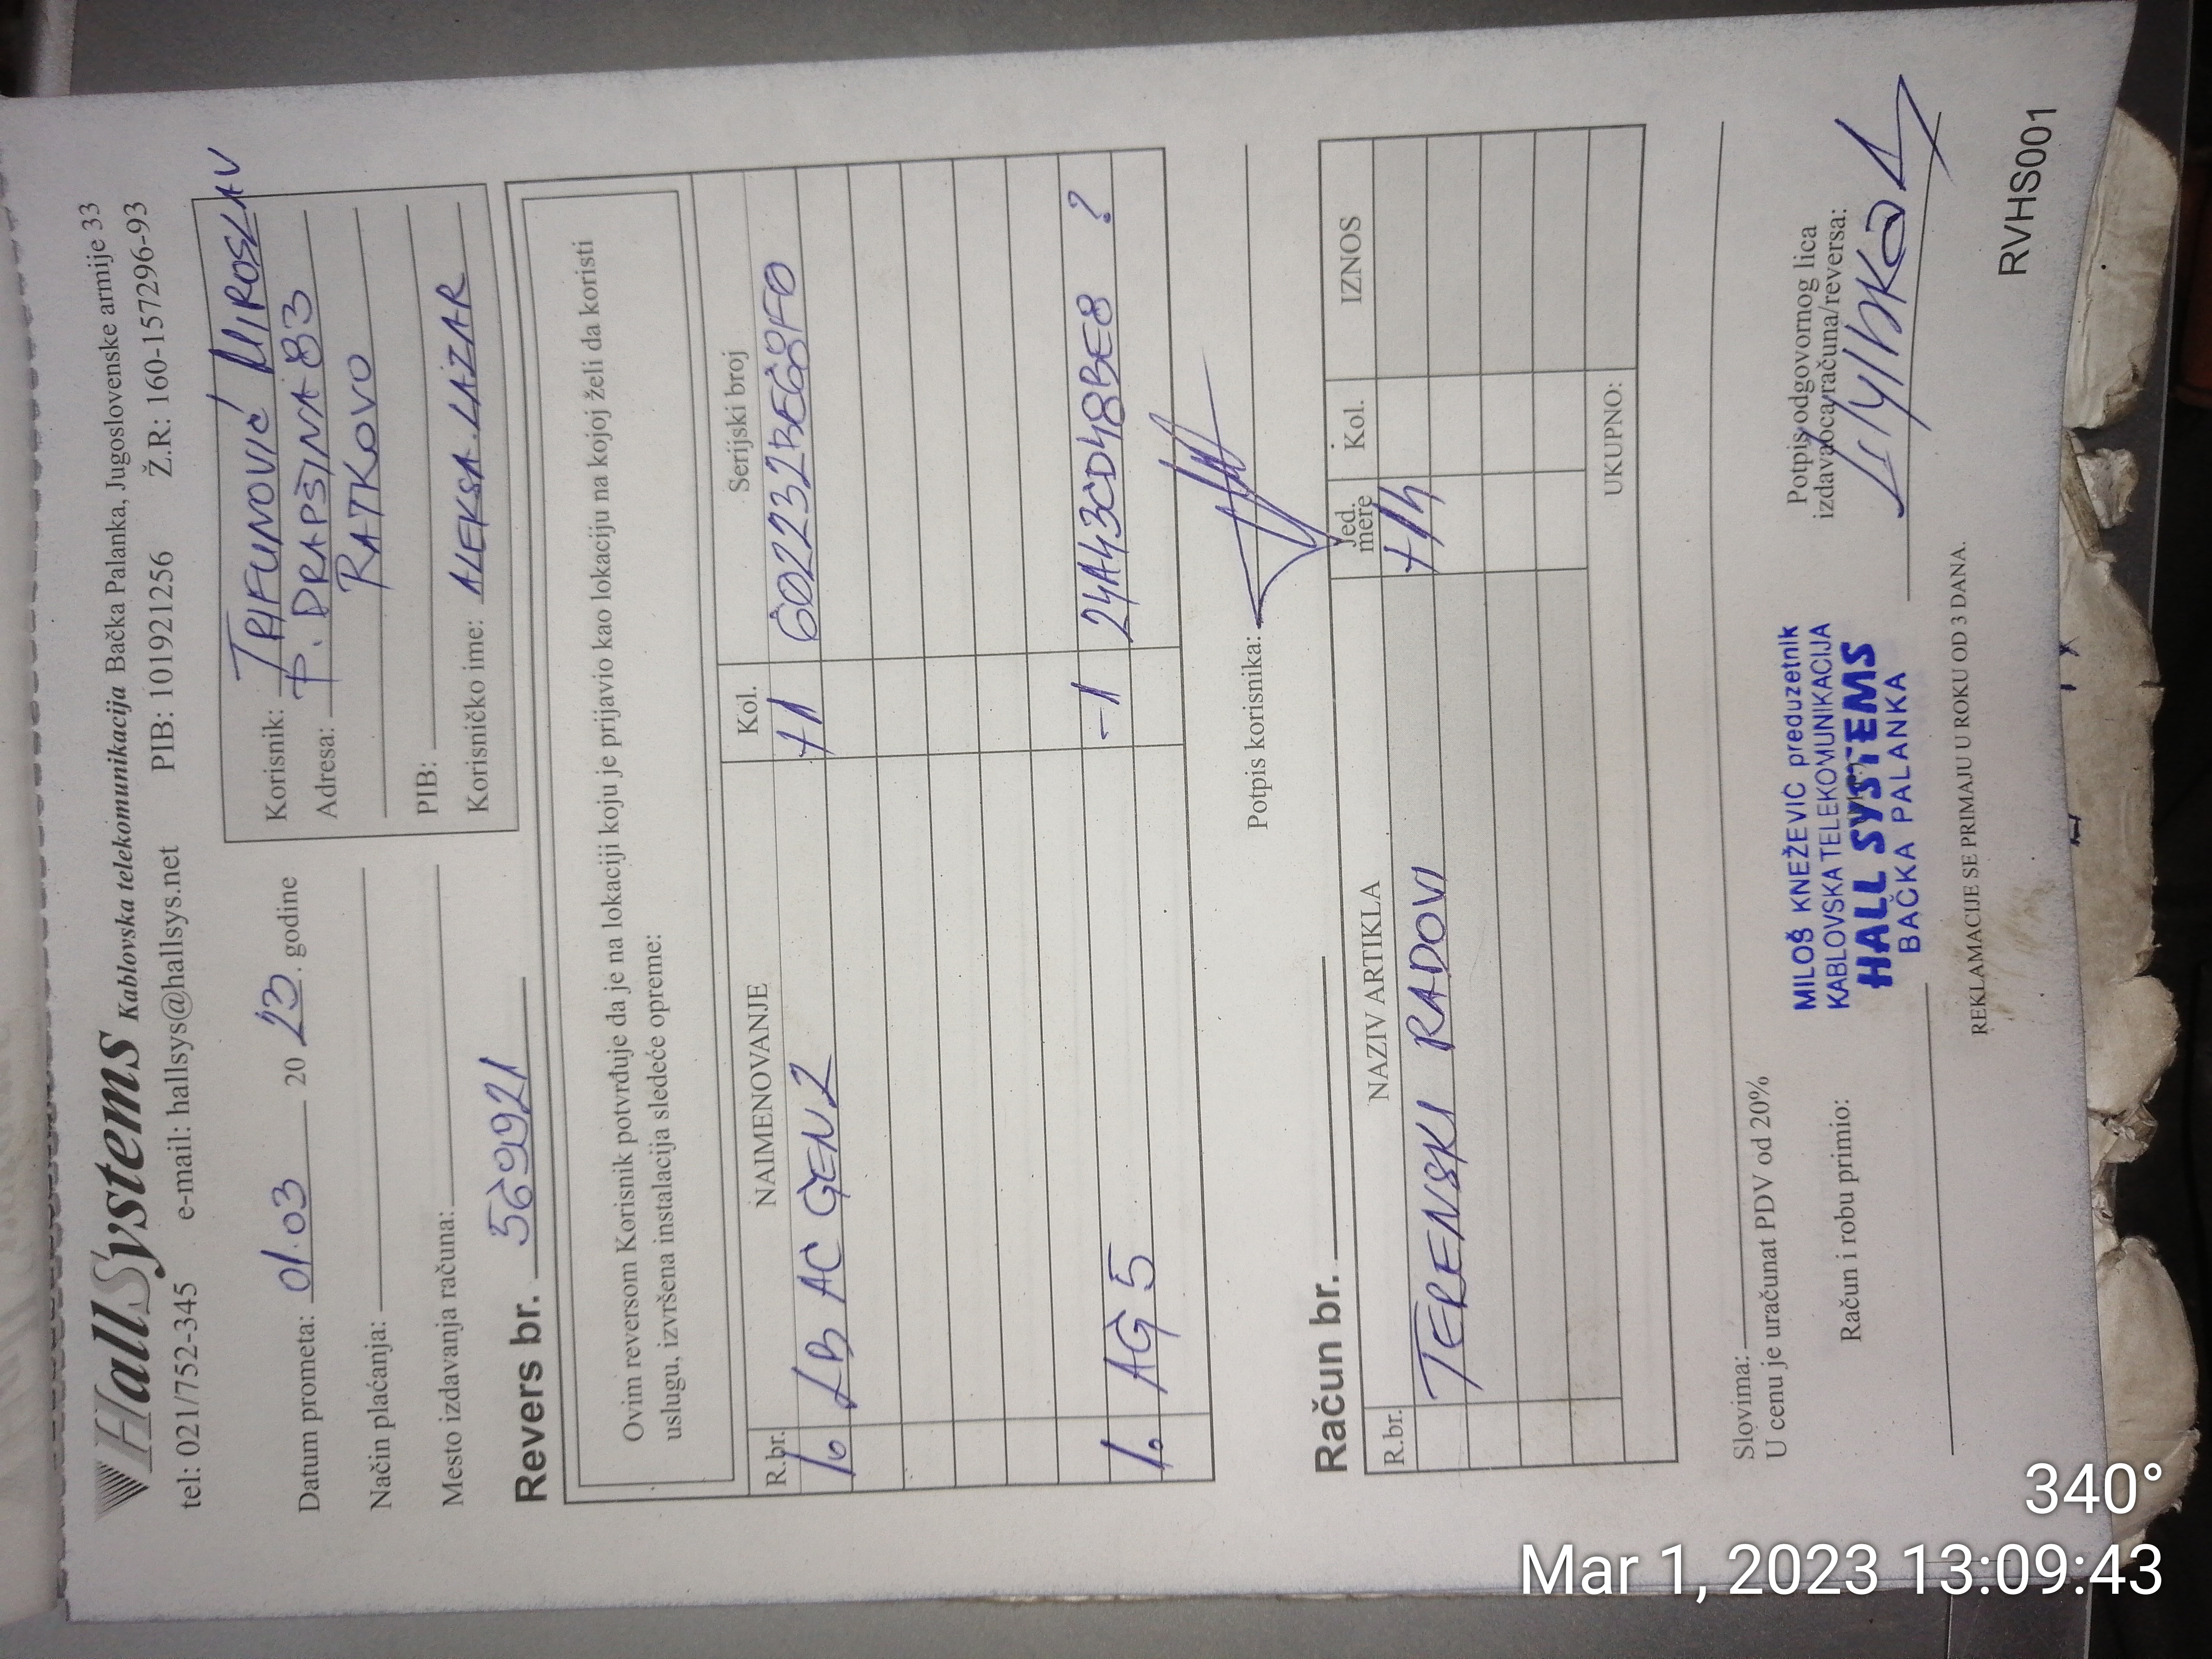 HallSystems Kablovska telekomunikacija Bačka Palanka, Jugoslovenske armije 33
tel: 021/752-345 e-mail: hallsys@hallsys.net PIB: 101921256 Ž.R: 160-157296-93
Datum prometa: 01.03 20 23. godine
Način plaćanja:
Mesto izdavanja računa:
Korisnik: TRIFUNOVIĆ MIROSLAV
Adresa: P. DRAPŠINA 83
RATKOVO
PIB:
Korisničko ime: ALEKSA.LAZAR
Revers br. 569921
Ovim reversom Korisnik potvrđuje da je na lokaciji koju je prijavio kao lokaciju na kojoj želi da koristi
uslugu, izvršena instalacija sledeće opreme:
R.br. NAIMENOVANJE Kol. Serijski broj
1. LB AC GEN2 +1 602232BE68F0
1. AG 5 -1 24A43CD48BE8 ?
Potpis korisnika:
Račun br.
R.br. NAZIV ARTIKLA Jed. mere Kol. IZNOS
TERENSKI RADOVI +1h
UKUPNO:
Slovima:
U cenu je uračunat PDV od 20%
Račun i robu primio:
MILOŠ KNEŽEVIĆ preduzetnik
KABLOVSKA TELEKOMUNIKACIJA
HALL SYSTEMS
BAČKA PALANKA
Potpis odgovornog lica
izdavaoca računa/reversa:
REKLAMACIJE SE PRIMAJU U ROKU OD 3 DANA.
RVHS001
340°
Mar 1, 2023 13:09:43